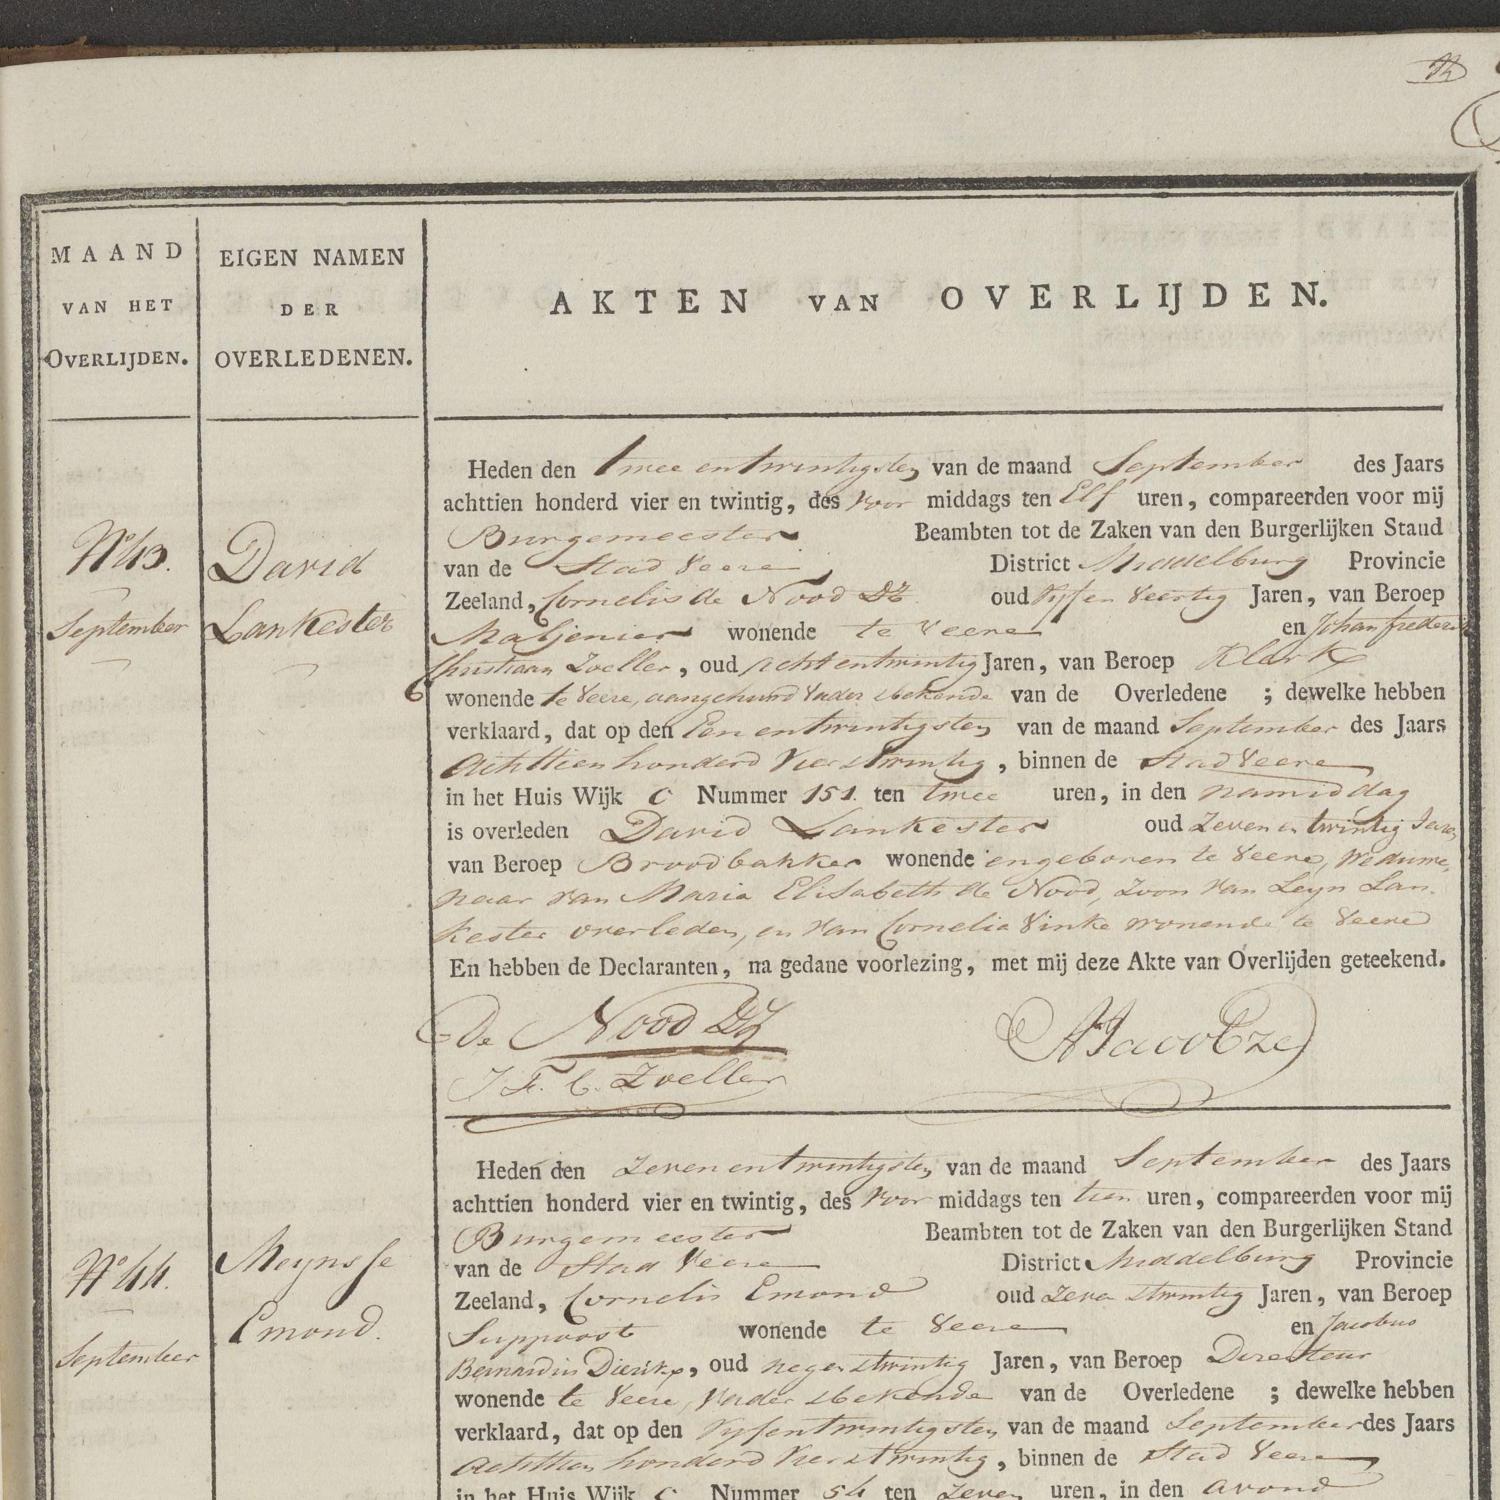 MAAND
VAN HET
OVERLIJDEN.
EIGEN NAMEN
DER
OVERLEDENEN.
AKTEN VAN OVERLIJDEN.
No 43.
September
David
Lankester
Heden den twee en twintigsten van de maand September des Jaars
achttien honderd vier en twintig, des voor middags ten Elf uren, compareerden voor mij
Burgemeester Beambten tot de Zaken van den Burgerlijken Stand
van de Stad Veere District Middelburg Provincie
Zeeland, Cornelis de Nood DZ oud Vyf en Veertig Jaren, van Beroep
wonende te Veere en Johan frederik
Christiaan Zoeller, oud acht en twintig Jaren, van Beroep Klerk
wonende te Veere, aangehuwd Vader & bekende van de Overledene ; dewelke hebben
verklaard, dat op den Een en twintigsten van de maand September des Jaars
Achttien honderd Vier & twintig, binnen de Stad Veere
in het Huis Wijk C Nummer 151. ten twee uren, in den namiddag
is overleden David Lankester oud Zeven en twintig Jaren
van Beroep Broodbakker wonende en geboren te Veere, Weduwe,
naar van Maria Elisabeth de Nood, Zoon van Leyn Lan-
kester overleden, en van Cornelia Vinke wonende te Veere
En hebben de Declaranten, na gedane voorlezing, met mij deze Akte van Overlijden geteekend.
C De Nood DZ
J. F. C. Zoeller
AJacobze
No 44.
September
Meynsse
Emond.
Heden den Zeven en twintigsten van de maand September des Jaars
achttien honderd vier en twintig, des voor middags ten tien uren, compareerden voor mij
Burgemeester Beambten tot de Zaken van den Burgerlijken Stand
van de Stad Veere District Middelburg Provincie
Zeeland, Cornelis Emond oud Zeven & twintig Jaren, van Beroep
Suppoost wonende te Veere en Jacobus
Bernardus Dierikx, oud negen & twintig Jaren, van Beroep Directeur
wonende te Veere, Vader & bekende van de Overledene ; dewelke hebben
verklaard, dat op den Vyf en twintigsten van de maand September des Jaars
Achttien honderd Vier & twintig, binnen de Stad Veere
in het Huis Wijk C Nummer 54 ten Zeven uren, in den avond